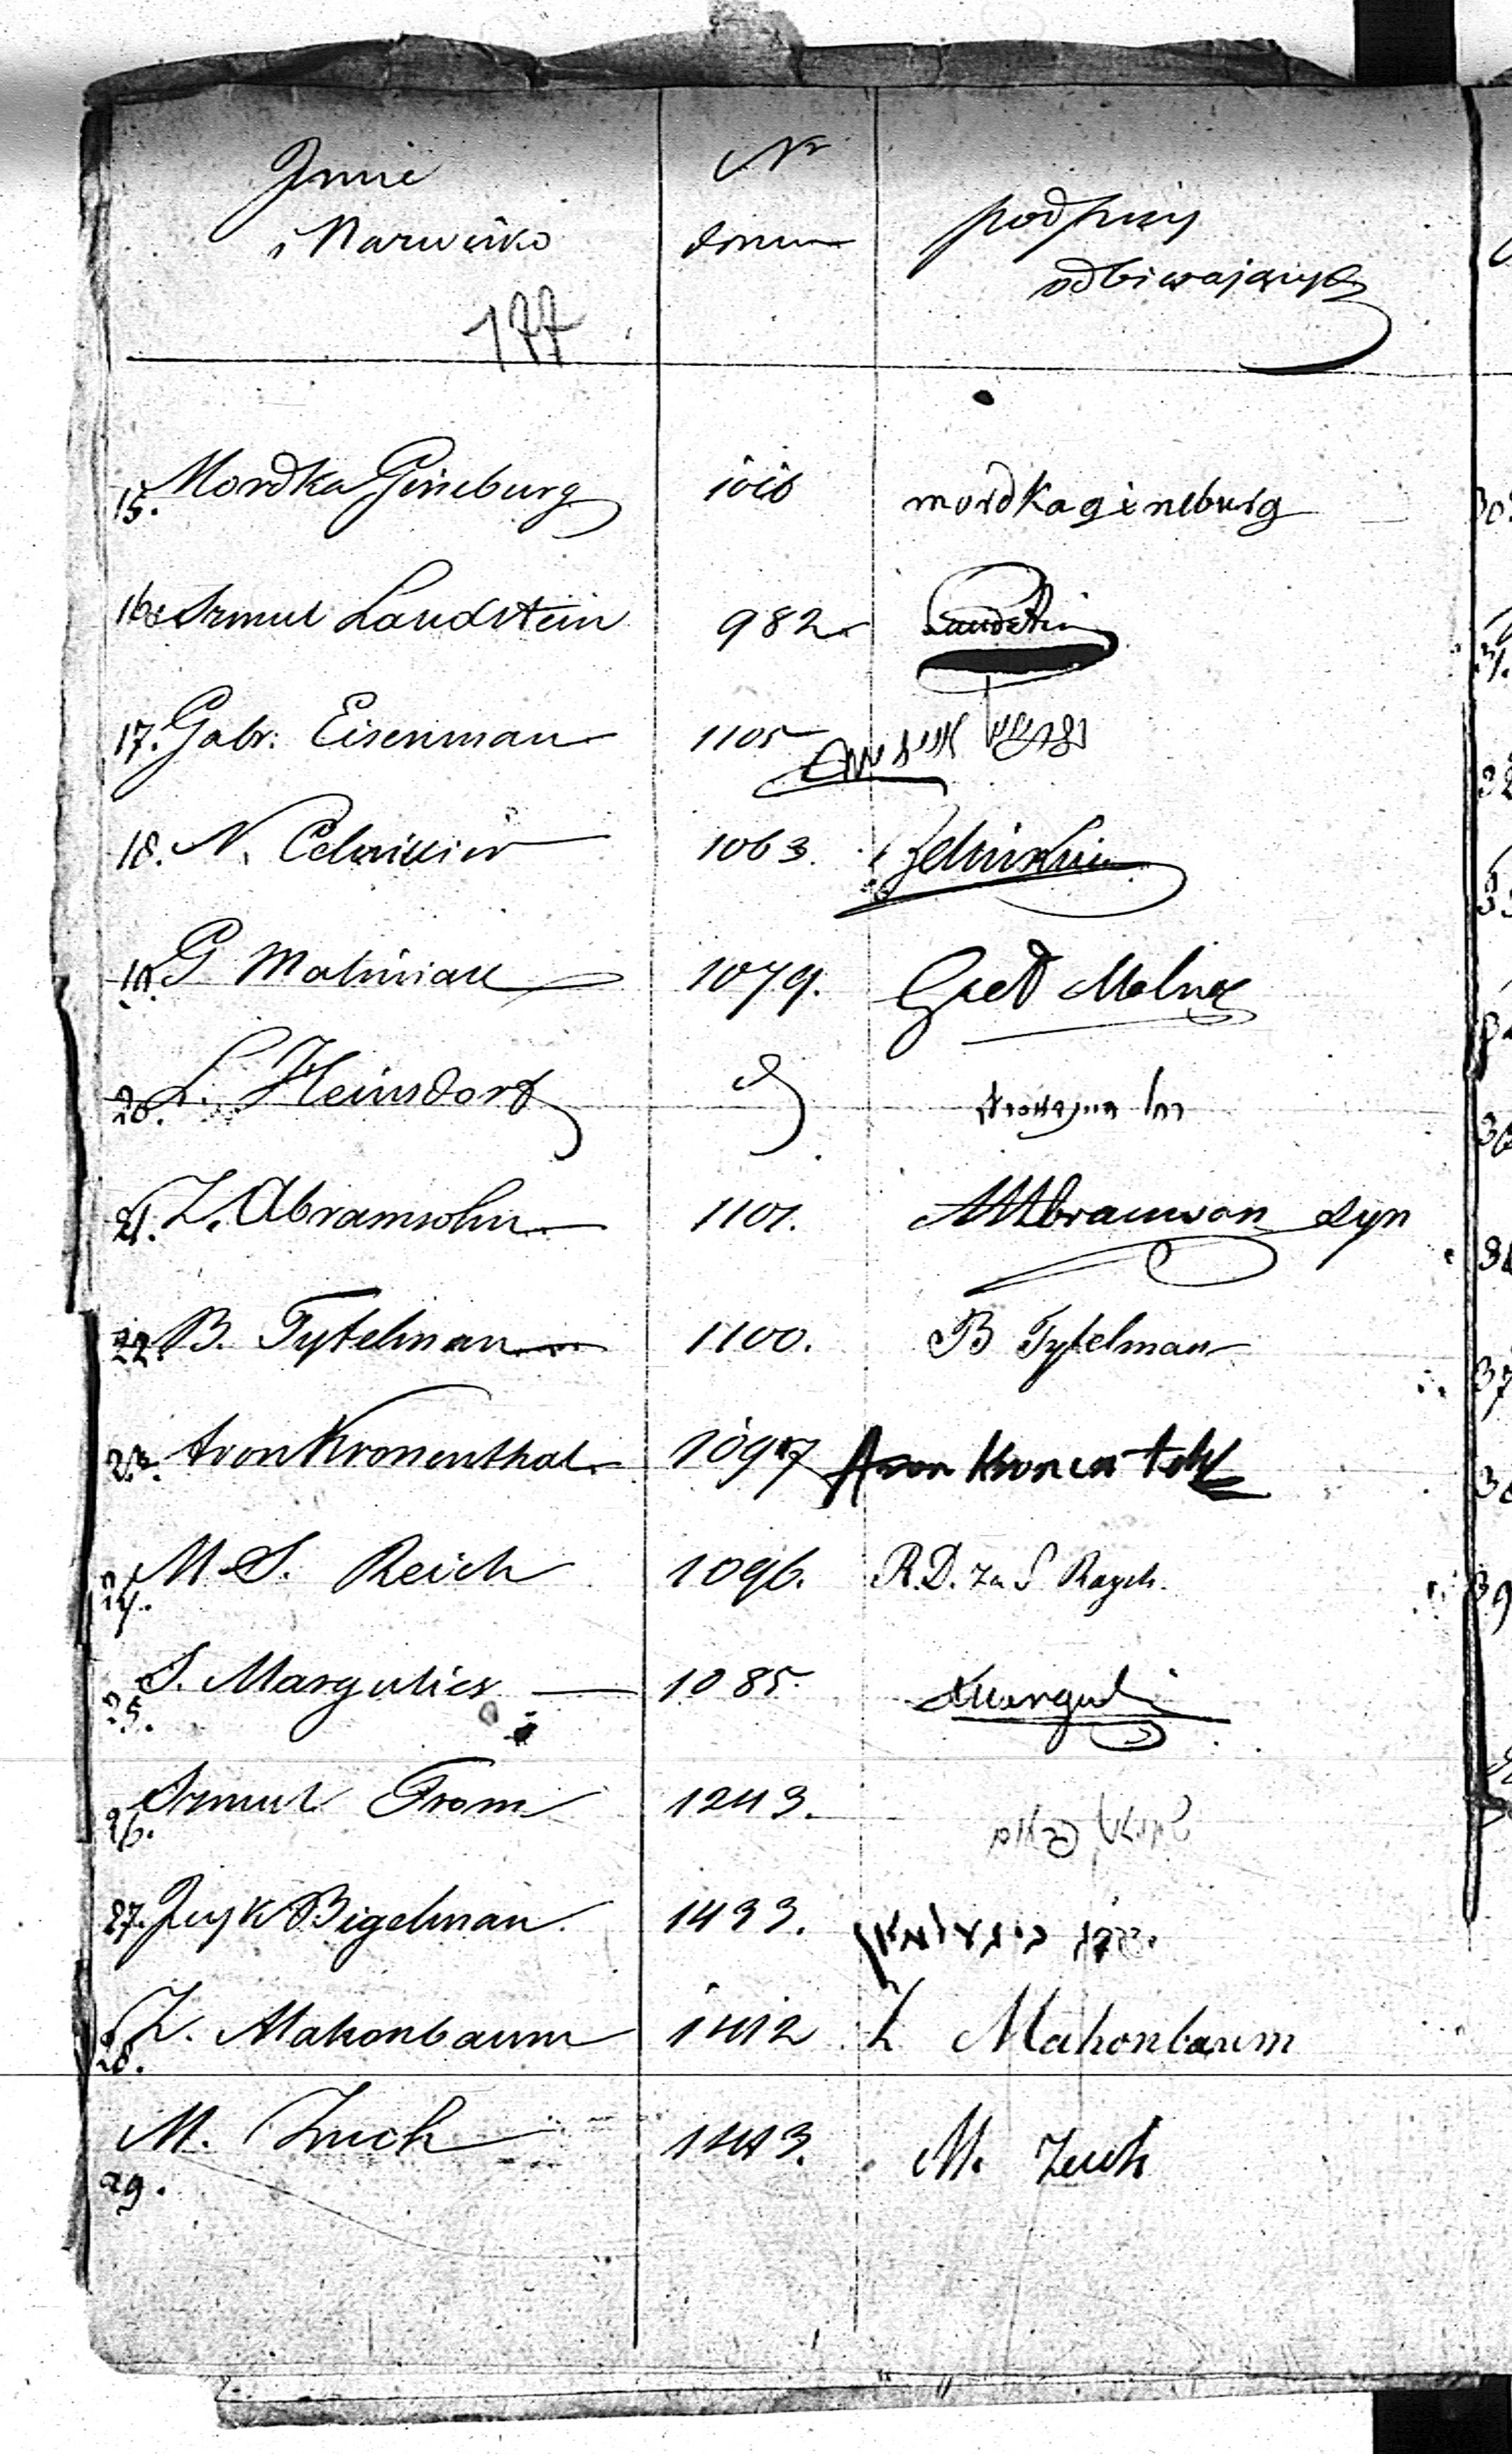 Imie Nr podpisy
i Nazwisko domu odbierających
177
15. Mordka Ginsburg 1016 mordka ginsburg
16. Szmul Landstein 982 Landstein
17. Gabr: Eisenman 1105
18. N. Celnikier 1063.
19. G Maliniak 1079.
20. L. Heinsdorf
21. Z. Abramsohn 1101. Abramson syn
22. B. Tytelman 1100. B Tytelman
23. Aron Kronenthal 1097 Aron
24. M S. Reich 1096. R.D. za S Raych.
25. S. Margulies 1085. Marguli
26. Szmul From 1243.
27. Icyk Bigelman 1433. ביגעלמאן
28. Z. Makonbaum 1412 Z Makonbaum
29. M. Zuch 1443. M. Zuch